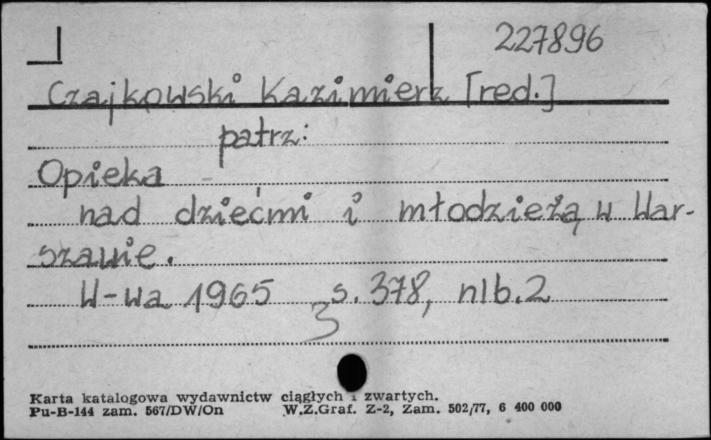 227896
Czajkowski Kazimierz [red.]
patrz:
Opieka
nad dziećmi i młodzieżą w War-
szawie.
W-wa 1965 s. 378, nlb. 2
3
Karta katalogowa wydawnictw ciągłych i zwartych.
Pu-B-144 zam. 567/DW/On W.Z.Graf. Z-2, Zam. 502/77, 6 400 000